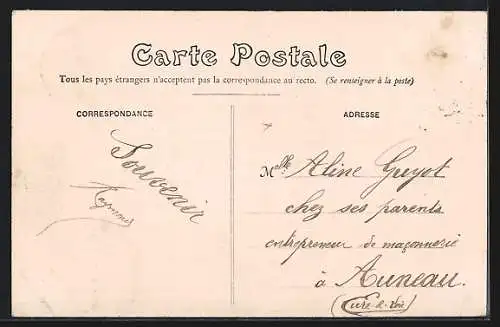 Carte Postale
Tous les pays étrangers n'acceptent pas la correspondance au recto. (Se renseigner à la poste)
CORRESPONDANCE
Souvenir
ADRESSE
Mlle Aline Guyot
chez ses parents
entrepreneur de maçonnerie
à Auneau.
(Eure-&-Loir)